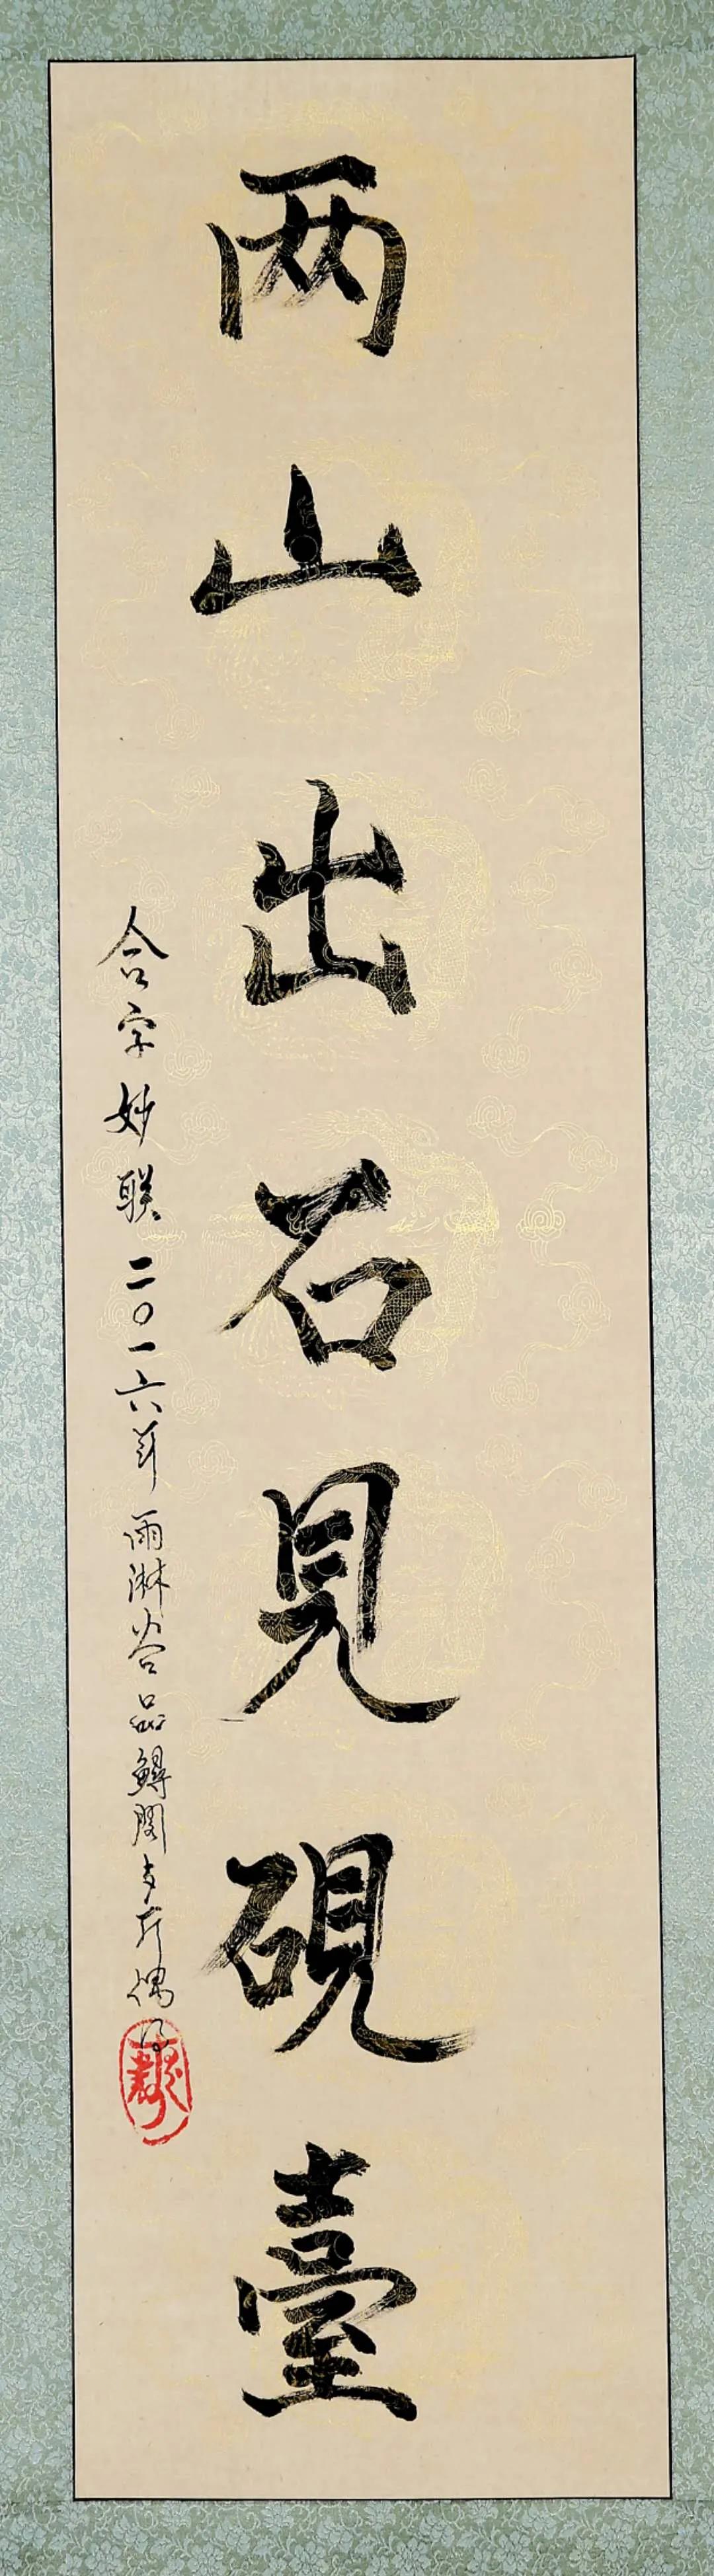 两山出石見硯臺
合字妙联二〇一六年雨淋谷品鱘閣